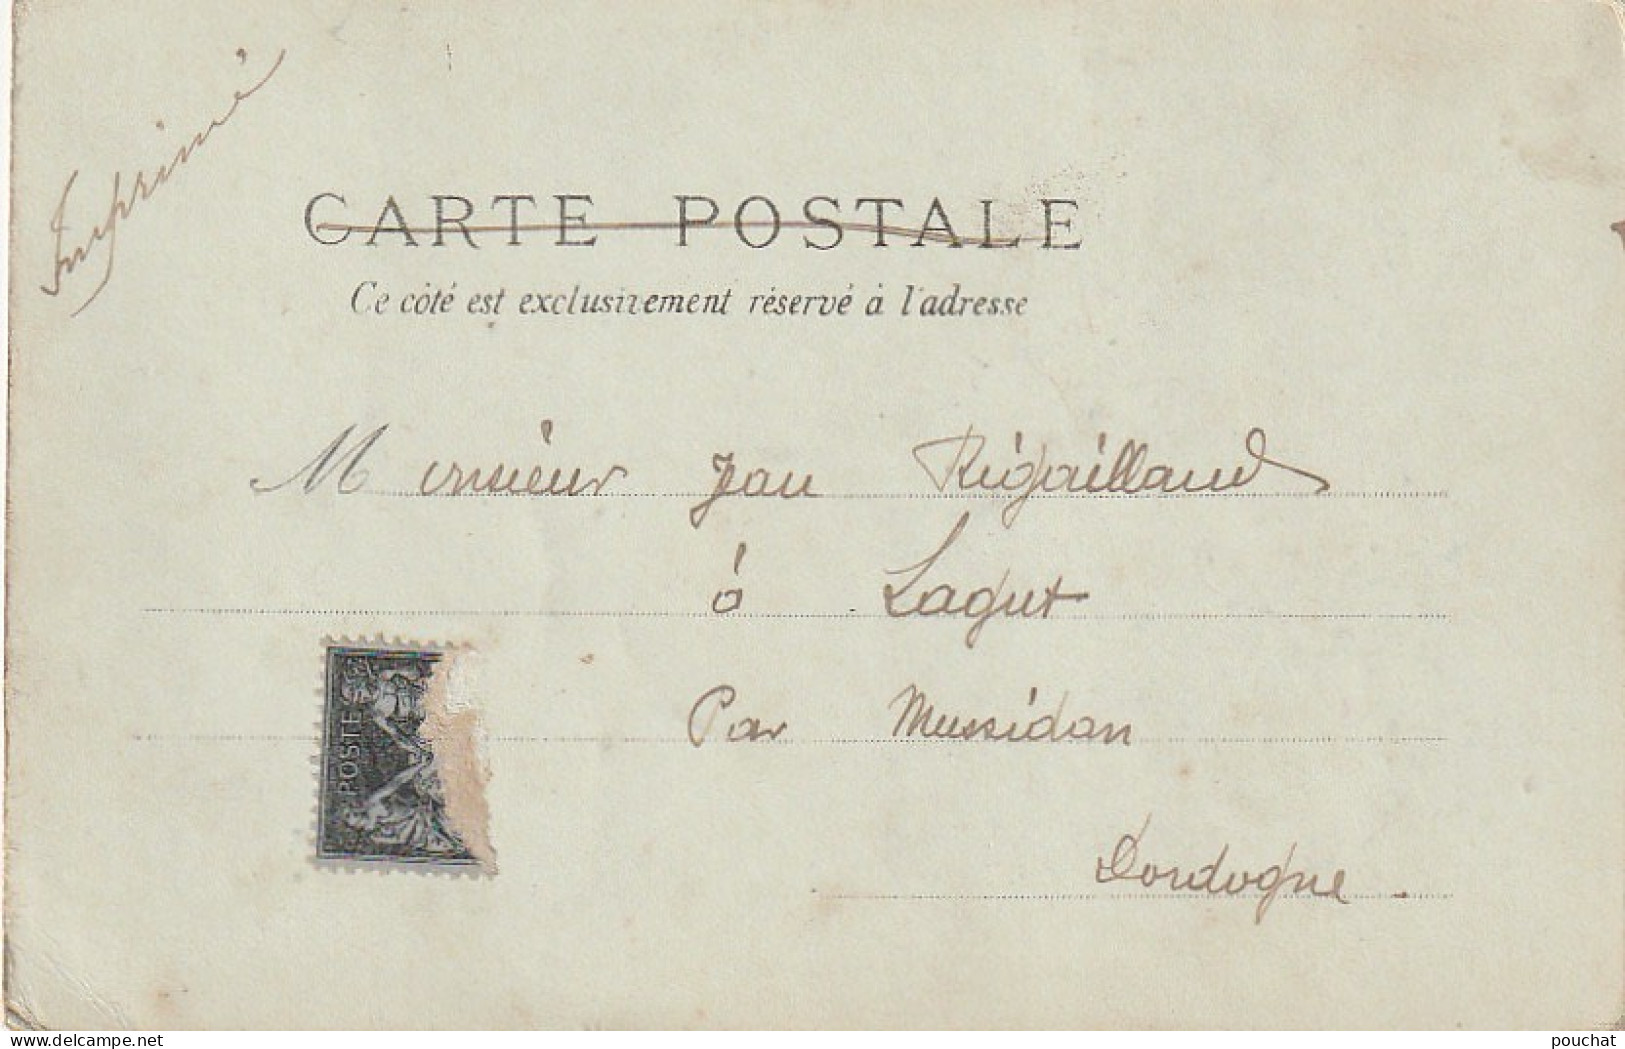 Imprimé
CARTE POSTALE
Ce côté est exclusivement réservé à l'adresse
Monsieur Jean Rigaillaud
à Lagut
Par Mussidan
Dordogne.
POSTE
www.delcampe.net
pouchat